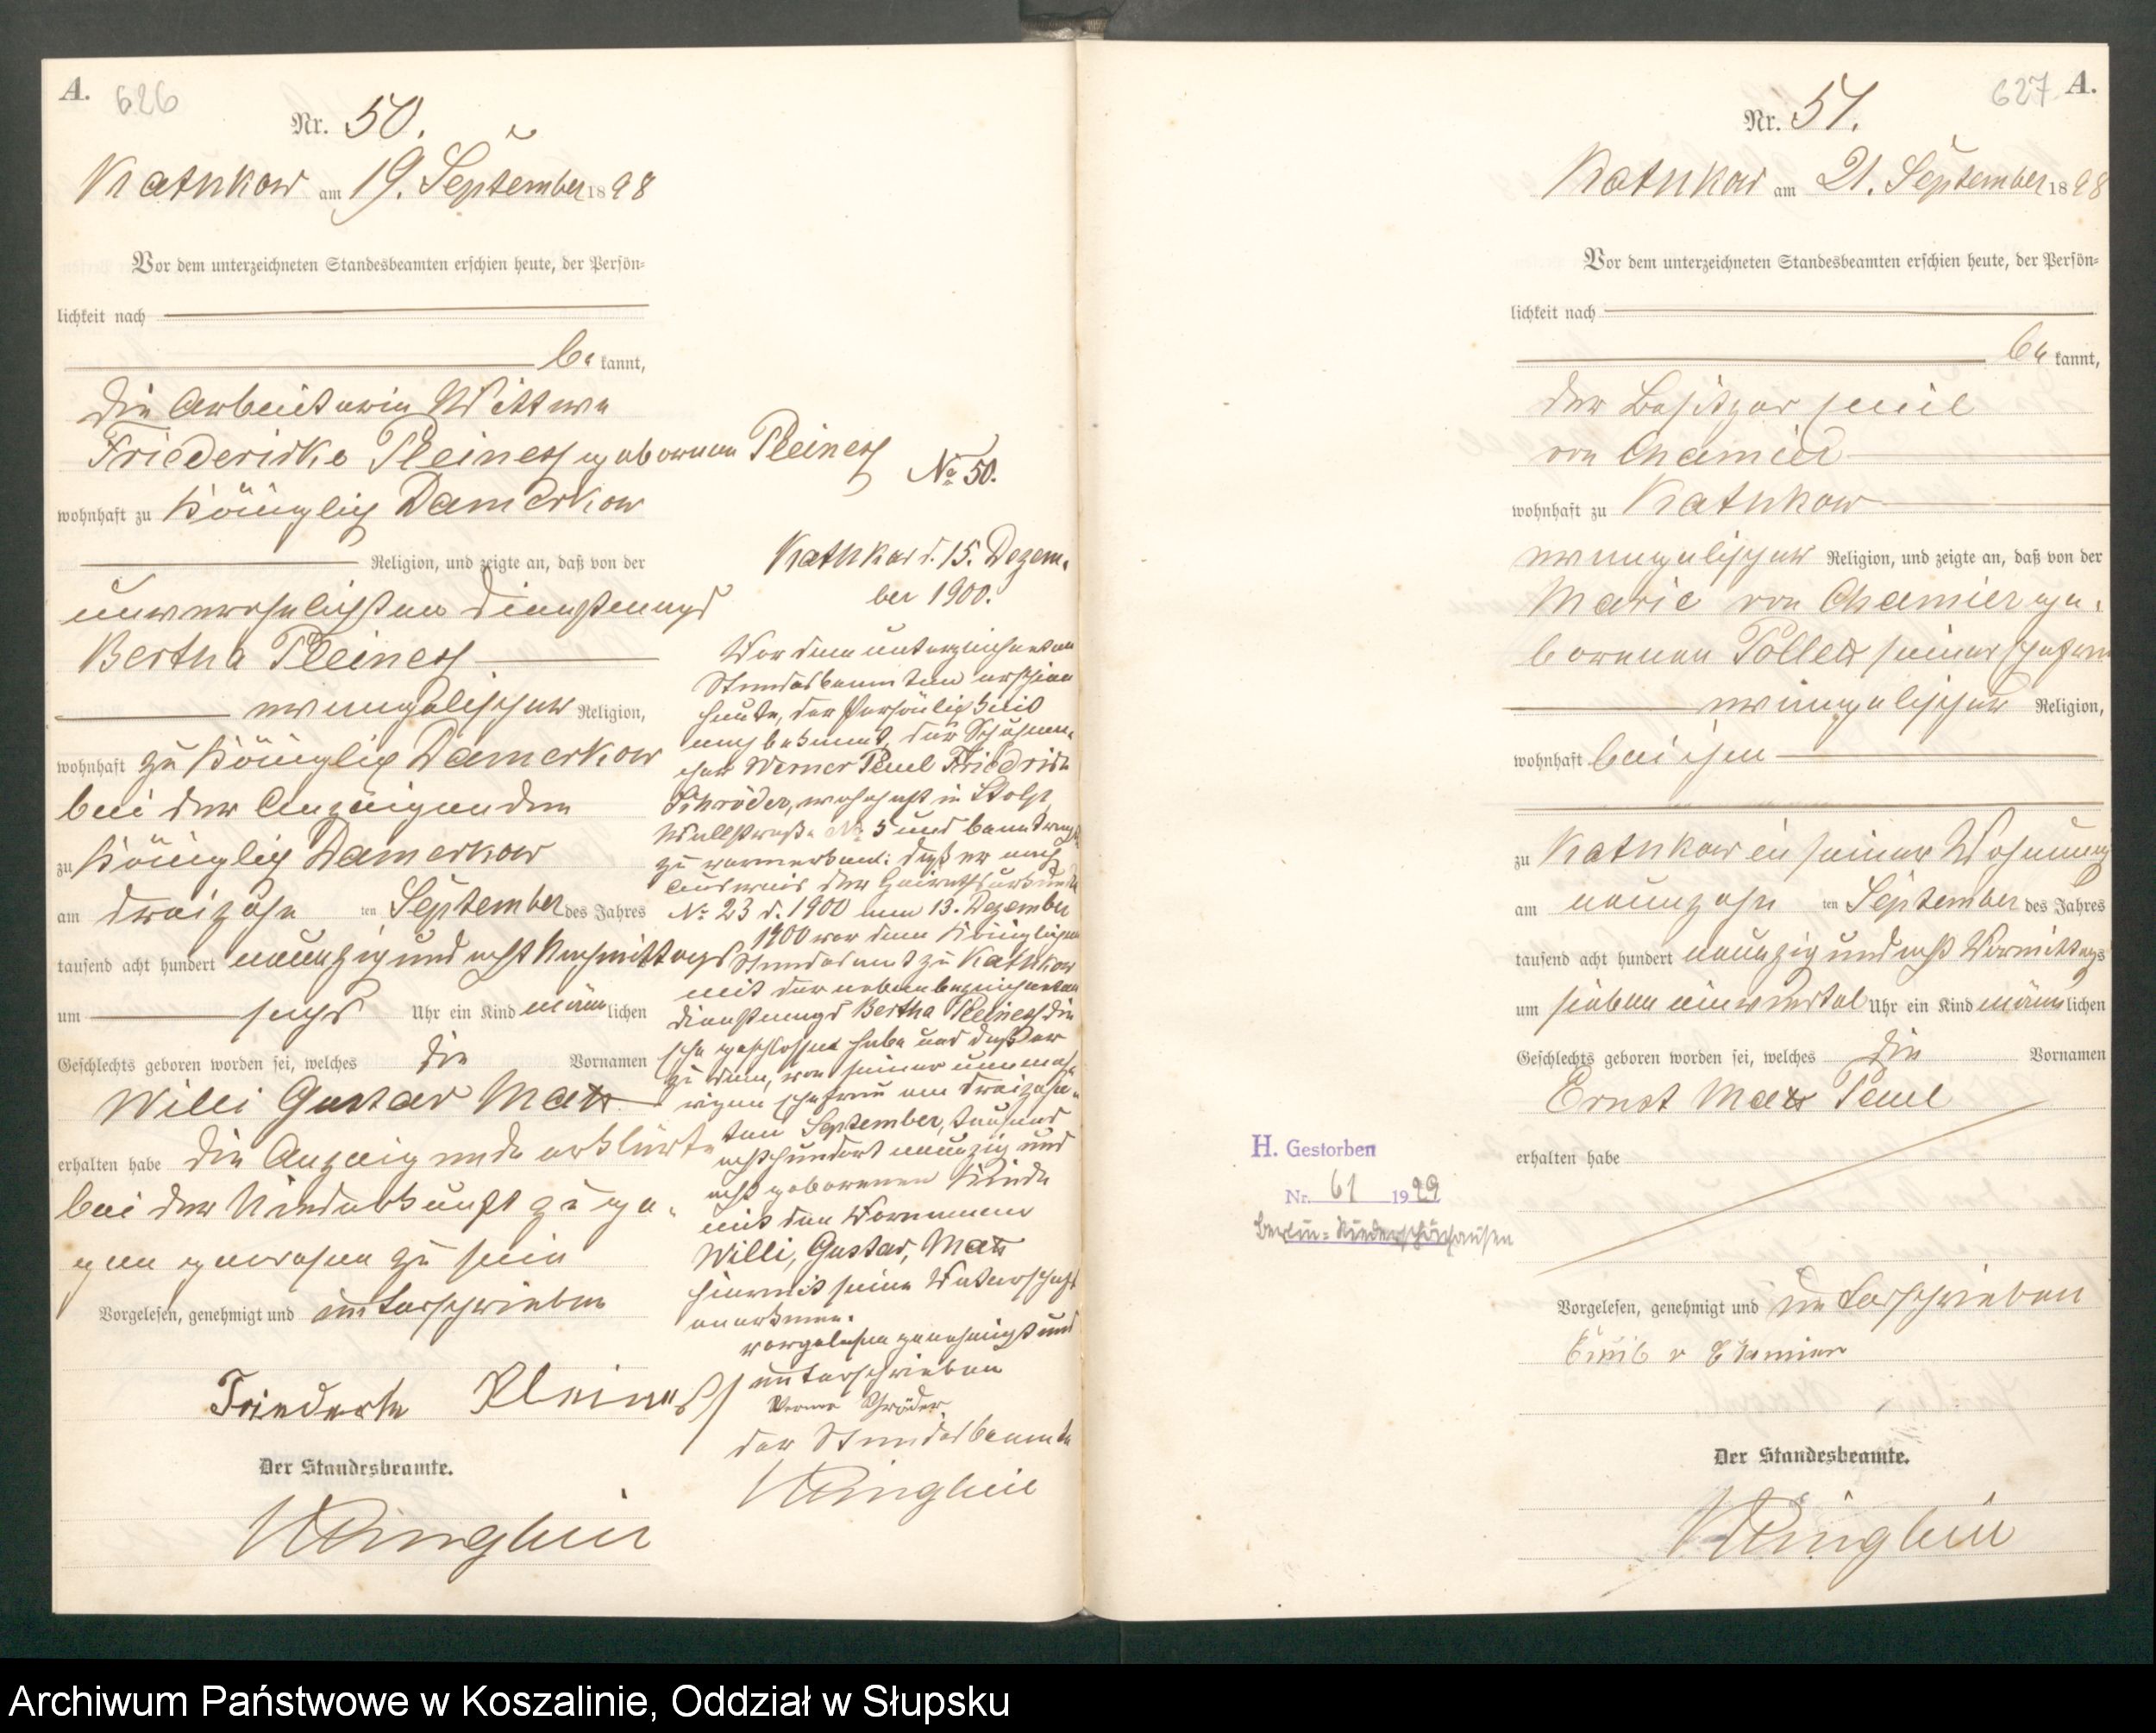 A. 626
Nr. 50.
Kathkow am 19. September 1898
Vor dem unterzeichneten Standesbeamten erschien heute, der Persön-
lichkeit nach
be kannt,
die Arbeiterin Wittwe
Friederike Pleiness geborenen Pleiness
wohnhaft zu Königlich Damerkow
Religion, und zeigte an, daß von der
unverehelichten Dienstmagd
Bertha Pleiness
evangelischer Religion,
wohnhaft zu Königlich Damerkow
bei der Anzeigenden
zu Königlich Damerkow
am dreizehn ten September des Jahres
tausend acht hundert neunzig und acht Nachmittags
um sechs Uhr ein Kind männ lichen
Geschlechts geboren worden sei, welches die Vornamen
Willi Gustav Max
erhalten habe die Anzeigende erklärte
bei der Niederkunft zuge-
gen gewesen zu sein
Vorgelesen, genehmigt und unterschrieben
Der Standesbeamte.
No 50.
Kathkow d. 15. Dezem-
ber 1900.
Vor dem unterzeichneten
Standesbeamten erschien
heute, der Persönlichkeit
nach bekannt, der Schuhma-
cher Werner Paul Friedrich
Schröder, wohnhaft in Stolp,
Wallstraße No 5 und beantragt
zu vermerken: daß er nach
Ausweis der Heirathsurkunde
No 23 d. 1900 am 13. Dezember
1900 vor dem Königlichen
Standesamt zu Kathkow
mit der nebenbezeichneten
Dienstmagd Bertha Pleiness die
Ehe geschlossen habe und daß er
zu dem, von seiner nunmeh-
rigen Ehefrau am dreizehn-
ten September, tausend
achthundert neunzig und
acht geborenen Kinde
mit den Vornamen
Willi, Gustav, Max
hiermit seine Vaterschaft
anerkenne.
vorgelesen genehmigt und
unterschrieben
Werner Schröder
der Standesbeamte
627 A.
Nr. 51.
Kathkow am 21. September 1898
Vor dem unterzeichneten Standesbeamten erschien heute, der Persön-
lichkeit nach
be kannt,
der Besitzer Emil
von Chamier
wohnhaft zu Kathkow
evangelischer Religion, und zeigte an, daß von der
Marie von Chamier ge-
borenen Pollex seiner Ehefrau
evangelischer Religion,
wohnhaft bei ihm
zu Kathkow in seiner Wohnung
am neunzehn ten September des Jahres
tausend acht hundert neunzig und acht Vormittags
um sieben einviertel Uhr ein Kind männ lichen
Geschlechts geboren worden sei, welches die Vornamen
Ernst Max Paul
erhalten habe
H. Gestorben
Nr. 61 1929
Berlin-Niederschönhausen
Vorgelesen, genehmigt und unterschrieben
Emil v Chamier
Der Standesbeamte.
Archiwum Państwowe w Koszalinie, Oddział w Słupsku